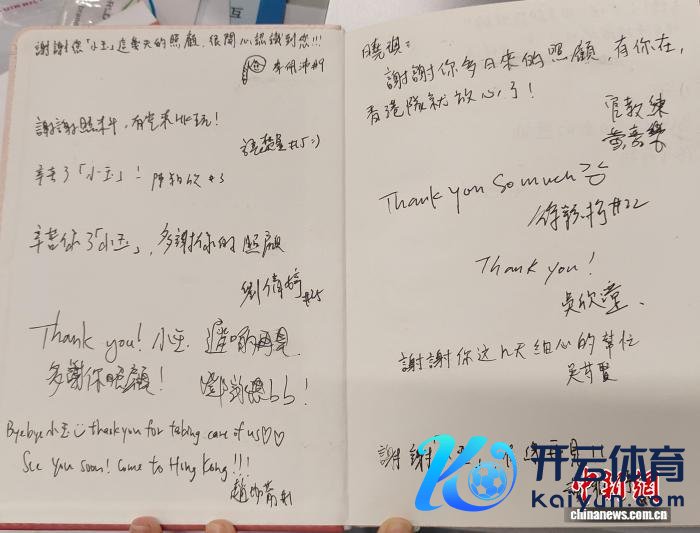 謝謝您「小玉」這幾天的照顧,很開心認識到您!!!
#9
謝謝照料,有空來HK玩!
#15 :)
辛苦了「小玉」! #3
辛苦你了「小玉」,多謝你的照顧
劉倩婷 #25
Thank you! 小玉 遲啲再見
多謝你照顧! bb!
Byebye 小玉 thank you for taking care of us♡♡
See you soon! Come to Hong Kong!!!
#1
謝謝你多日來的照顧,有你在,
香港隊就放心了!
官教練
Thank you so much
#22
Thank you!
吳欣瀅.
謝謝你这几天细心的幫忙
謝謝
开云体育
Kaiyun.com
中新網
chinanews.com.cn